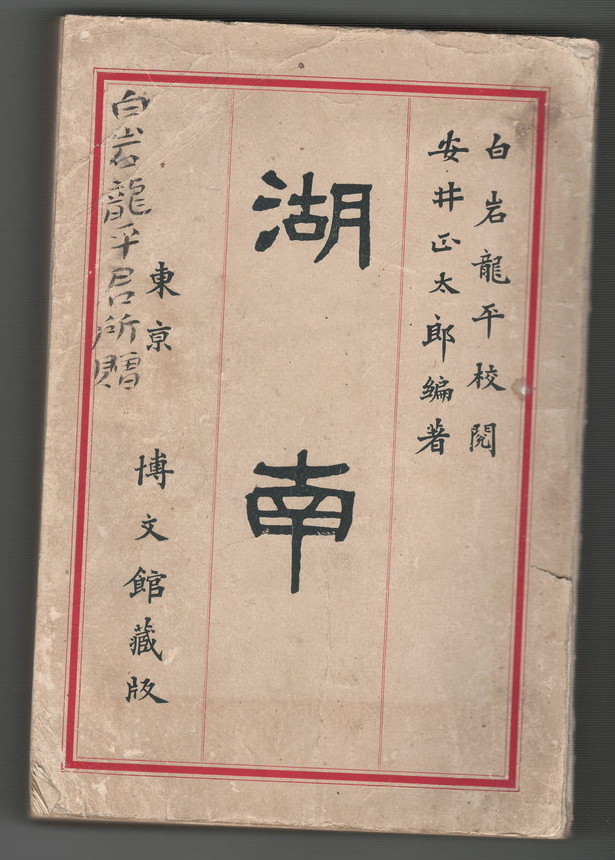 白岩龍平校閱
安井正太郎編著
湖南
東京 博文館藏版
白岩龍平君所贈